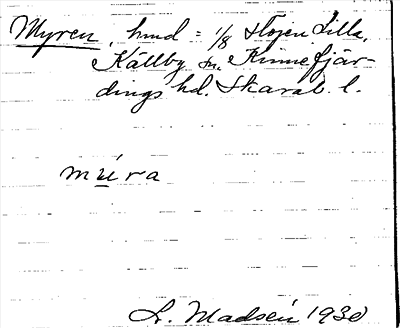 Myren, hmd = 1/8 Stogen Lilla,
Källby sn. Kinnefjär-
dings hd. Skarab. l.
mu̲ra
L. Madsén 1930